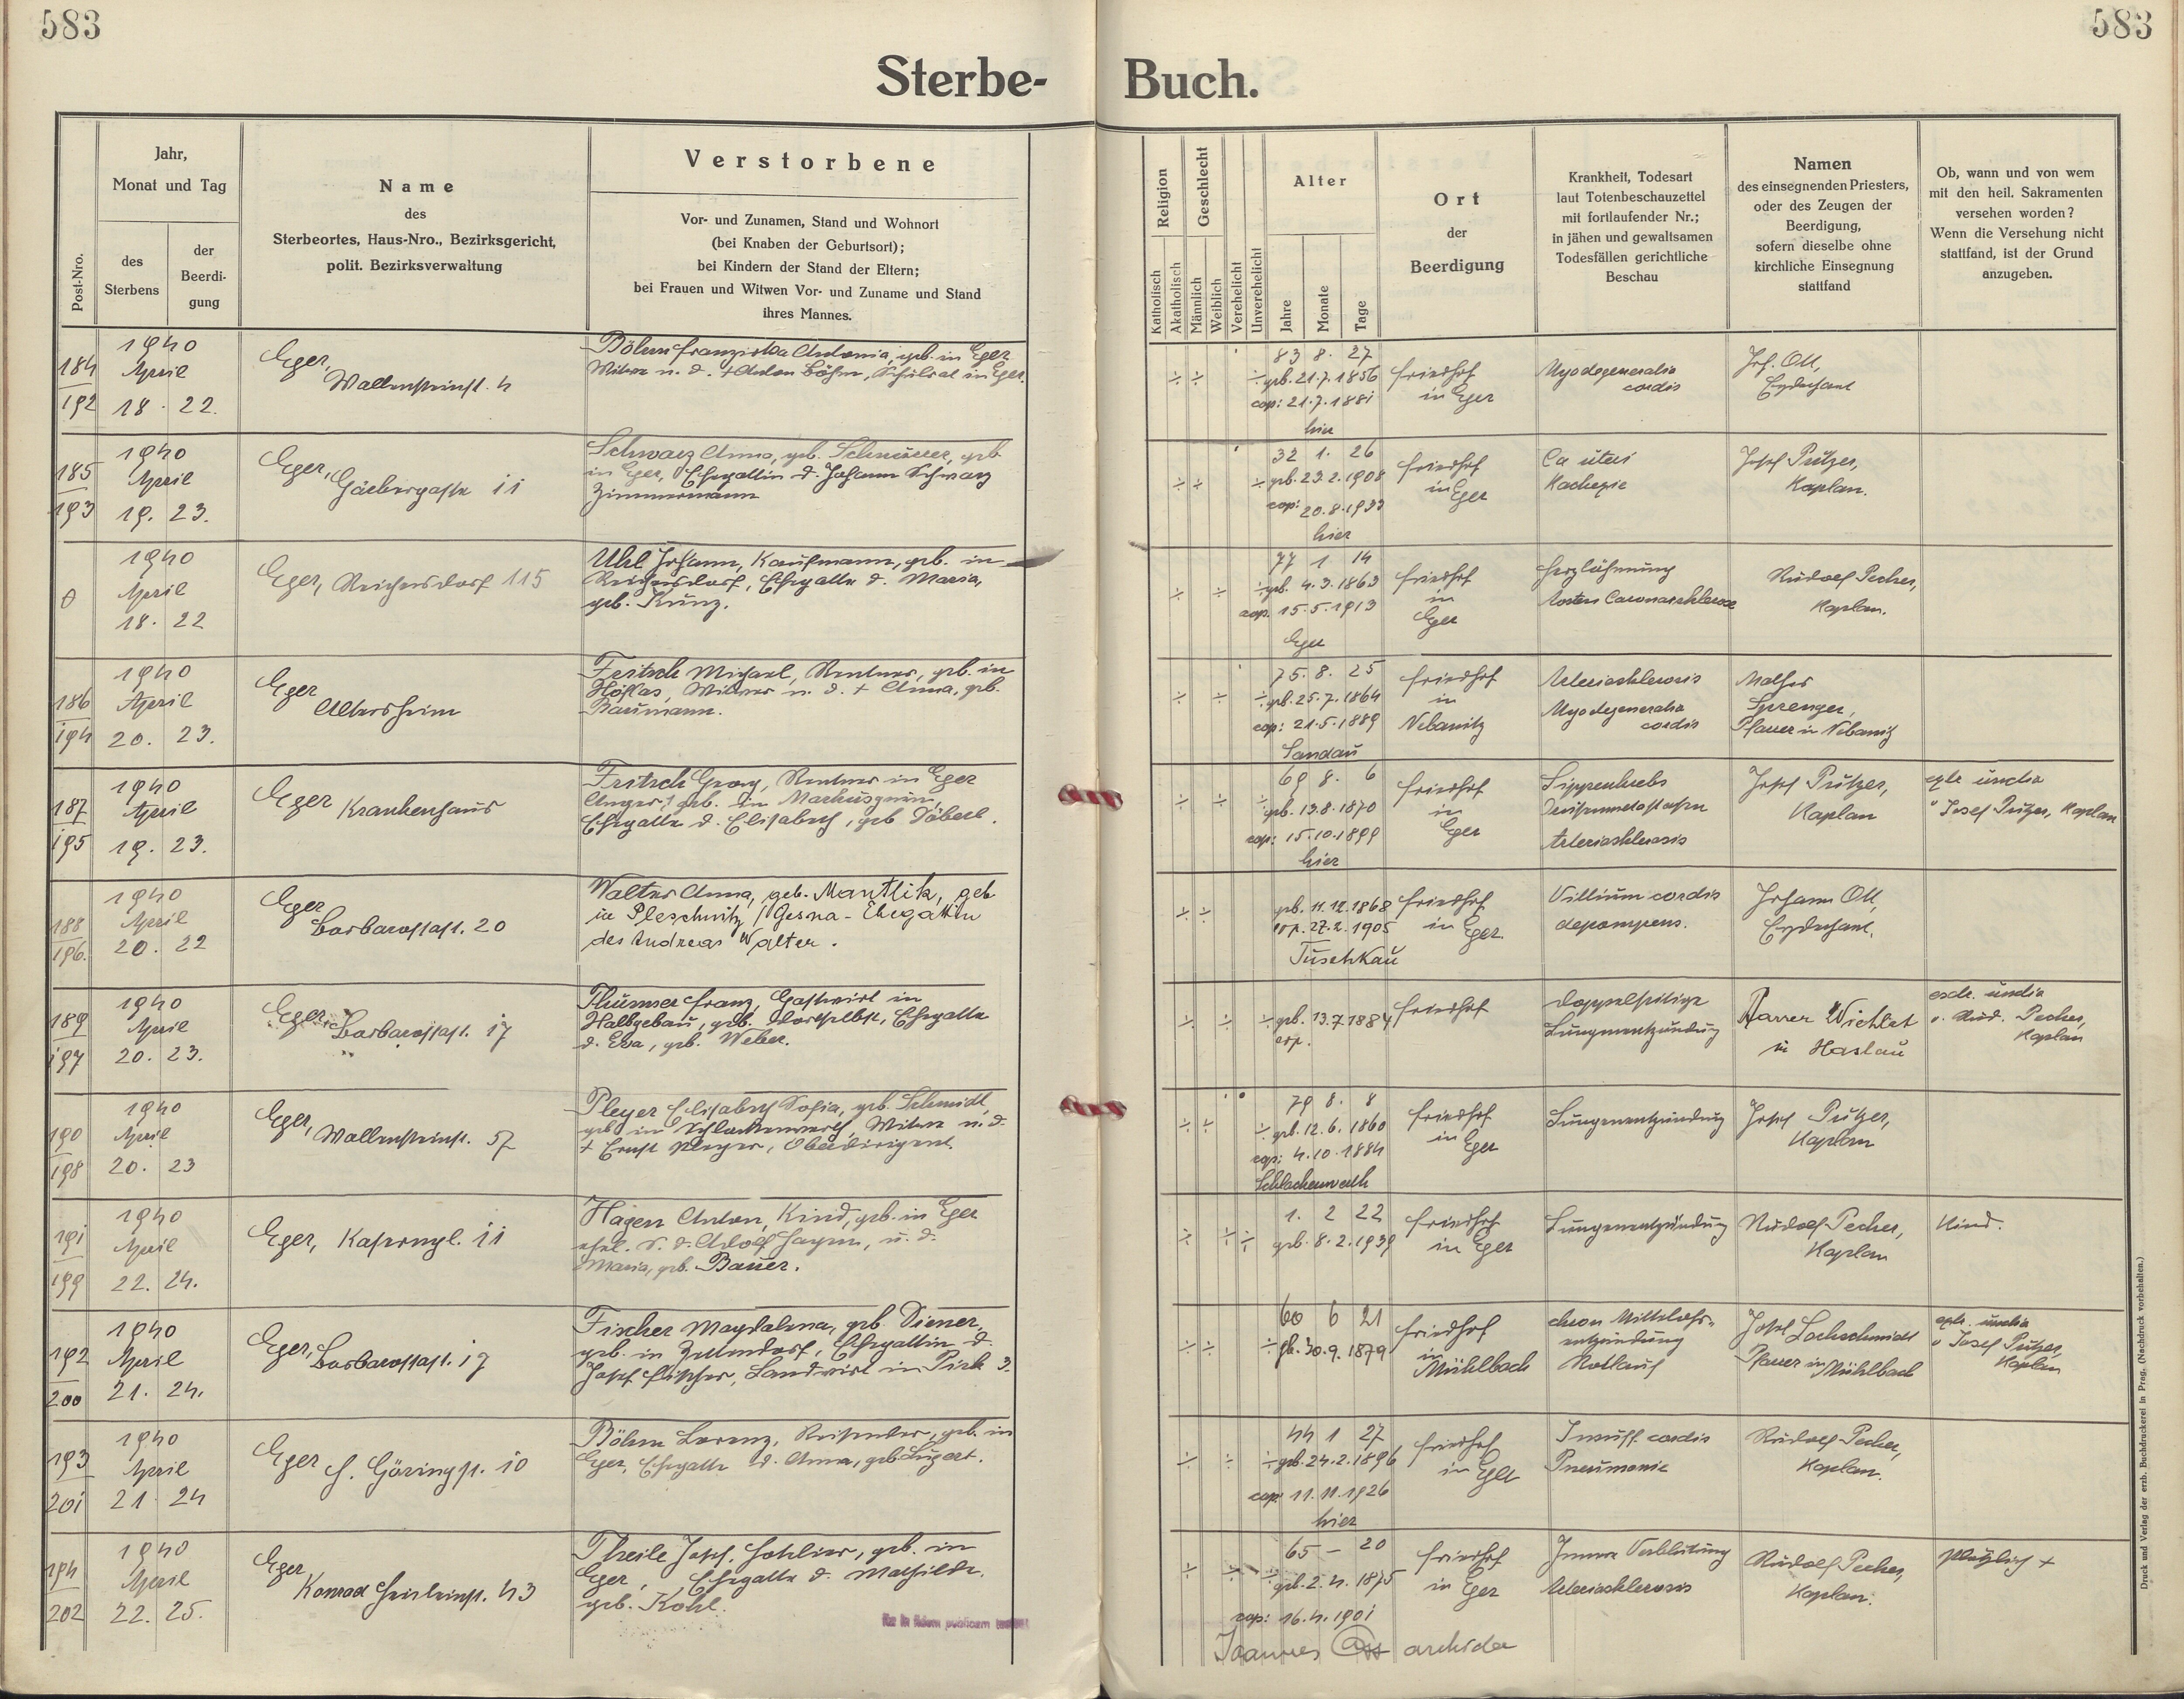 583
583
Sterbe-
Buch.
Post-Nro.
Jahr,
Monat und Tag
des
Sterbens
der
Beerdi-
gung
Name
des
Sterbeortes, Haus-Nro., Bezirksgericht,
polit. Bezirksverwaltung
Verstorbene
Vor- und Zunamen, Stand und Wohnort
(bei Knaben der Geburtsort);
bei Kindern der Stand der Eltern;
bei Frauen und Witwen Vor- und Zuname und Stand
ihres Mannes.
Religion
Katholisch
Akatholisch
Geschlecht
Männlich
Weiblich
Verehelicht
Unverehelicht
Alter
Jahre
Monate
Tage
Ort
der
Beerdigung
Krankheit, Todesart
laut Totenbeschauzettel
mit fortlaufender Nr.;
in jähen und gewaltsamen
Todesfällen gerichtliche
Beschau
Namen
des einsegnenden Priesters,
oder des Zeugen der
Beerdigung,
sofern dieselbe ohne
kirchliche Einsegnung
stattfand
Ob, wann und von wem
mit den heil. Sakramenten
versehen worden?
Wenn die Versehung nicht
stattfand, ist der Grund
anzugeben.
184
192
1940
April
18. 22.
Eger,
Wallensteinst. 4
Böhm Franziska Antonia, geb. in Eger
Witwe n. d. + Anton Böhm, Schulrat in Eger.
83 8. 27
geb. 21.7.1856
cop: 21.7.1881
hier
Friedhof
in Eger
Myodegeneratio
cordis
Joh. Ott,
Erzdechant
185
193
1940
April
19. 23.
Eger,
Gärbergasse 11
Schwarz Anna, geb. geb.
in Eger, Ehegattin d. Johann Schwarz
Zimmermann
32 1. 26
geb. 23.2.1908
cop: 20.8.1933
hier
Friedhof
in Eger
Ca uteri
Kachexie
Josef Putzer,
Kaplan.
0
1940
April
18. 22
Eger, Reichersdorf 115
Uhl Johann, Kaufmann, geb. in
Reichersdorf, Ehegatte d. Maria,
geb. Kunz.
77 1 14
geb. 4.3.1863
cop. 15.5.1913
Eger
Friedhof
in
Eger
Herzlähmung
Rudolf Pecher,
Kaplan.
186
194
1940
April
20. 23.
Eger
Altersheim
Fritsch Michael, Rentner, geb. in
Höflas, Witwer n. d. + Anna, geb.
Baumann.
75. 8. 25
geb. 25.7.1864
cop: 21.5.1889
Sandau
Friedhof
in
Nebanitz
Arteriosklerosis
Myodegeneratio
cordis
Sprenger,
Pfarrer in Nebanitz
187
195
1940
April
19. 23.
Eger Krankenhaus
Fritsch Georg, Rentner in Eger
Anger, geb. in Markusgrün,
Ehegatte d. Elisabeth, geb.
69 8. 6
geb. 13.8.1870
cop: 15.10.1899
hier
Friedhof
in
Eger
Lippenkrebs
Arteriosklerosis
Josef Putzer,
Kaplan
v Josef Putzer, Kaplan
188
196.
1940
April
20. 22
Eger
Barbarossast. 20
Walter Anna, geb. Mantlik, geb
in Pleschnitz / Gesna - Ehegattin
des Andreas Walter.
geb. 11.12.1868
cop. 27.2.1905
Tuschkau
Friedhof
in Eger.
Vitium cordis
Johann Ott,
Erzdechant.
189
197
1940
April
20. 23.
Eger, Barbarossast. 17
Thümmer Franz, Gastwirt in
Halbgebau, geb. daselbst, Ehegatte
d. Eva, geb. Weber.
geb. 13.7.1884
cop.
Friedhof
doppelseitige
Lungenentzündung
Pfarrer
in Haslau
v. Rud. Pecher,
Kaplan
190
198
1940
April
20. 23
Eger,
Wallensteinst. 57
Pleyer Elisabeth Sofia, geb. Schmidt,
geb in Schlackenwerth, Witwe n. d.
+ Ernst Pleyer,
79 8. 8
geb. 12.6.1860
cop: 4.10.1884
Schlackenwerth
Friedhof
in Eger
Lungenentzündung
Josef Putzer,
Kaplan
191
199
1940
April
22. 24.
Eger, 11
Hagen Anton, Kind, geb. in Eger
ehel. S. d. Adolf Hagen, u. d.
Maria, geb. Bauer.
1. 2 22
geb. 8.2.1939
Friedhof
in Eger
Lungenentzündung
Rudolf Pecher,
Kaplan
Kind.
192
200
1940
April
21. 24.
Eger, Barbarossast. 17
Fischer Magdalena, geb. Diener,
geb. in Zettendorf, Ehegattin d.
Josef Fischer, Landwirt in Pirk 3.
60 6 21
gb. 30.9.1879
Friedhof
in
Mühlbach
chron Mittelohr-
entzündung
Rotlauf
Josef Lochschmidt
Pfarrer in Mühlbach
v Josef Putzer,
Kaplan
193
201
1940
April
21. 24
Eger H. Göringst. 10
Böhm Lorenz, Reisender, geb. in
Eger, Ehegatte d. Anna, geb. Lugert.
44 1 27
geb. 24.2.1896
cop: 11.11.1926
hier
Friedhof
in Eger
Insuff. cordis
Pneumonie
Rudolf Pecher,
Kaplan.
194
202
1940
April
22. 25.
Eger
43
Theile Josef, Hotelier, geb. in
Eger, Ehegatte d. Mathilde,
geb. Kohl.
65 – 20
geb. 2.4.1875
cop: 16.4.1901
Friedhof
in Eger
Innere Verblutung
Arteriosklerosis
Rudolf Pecher,
Kaplan.
plötzlich +
Joannes Ott archidec
Druck und Verlag der erzb. Buchdruckerei in Prag. (Nachdruck vorbehalten.)